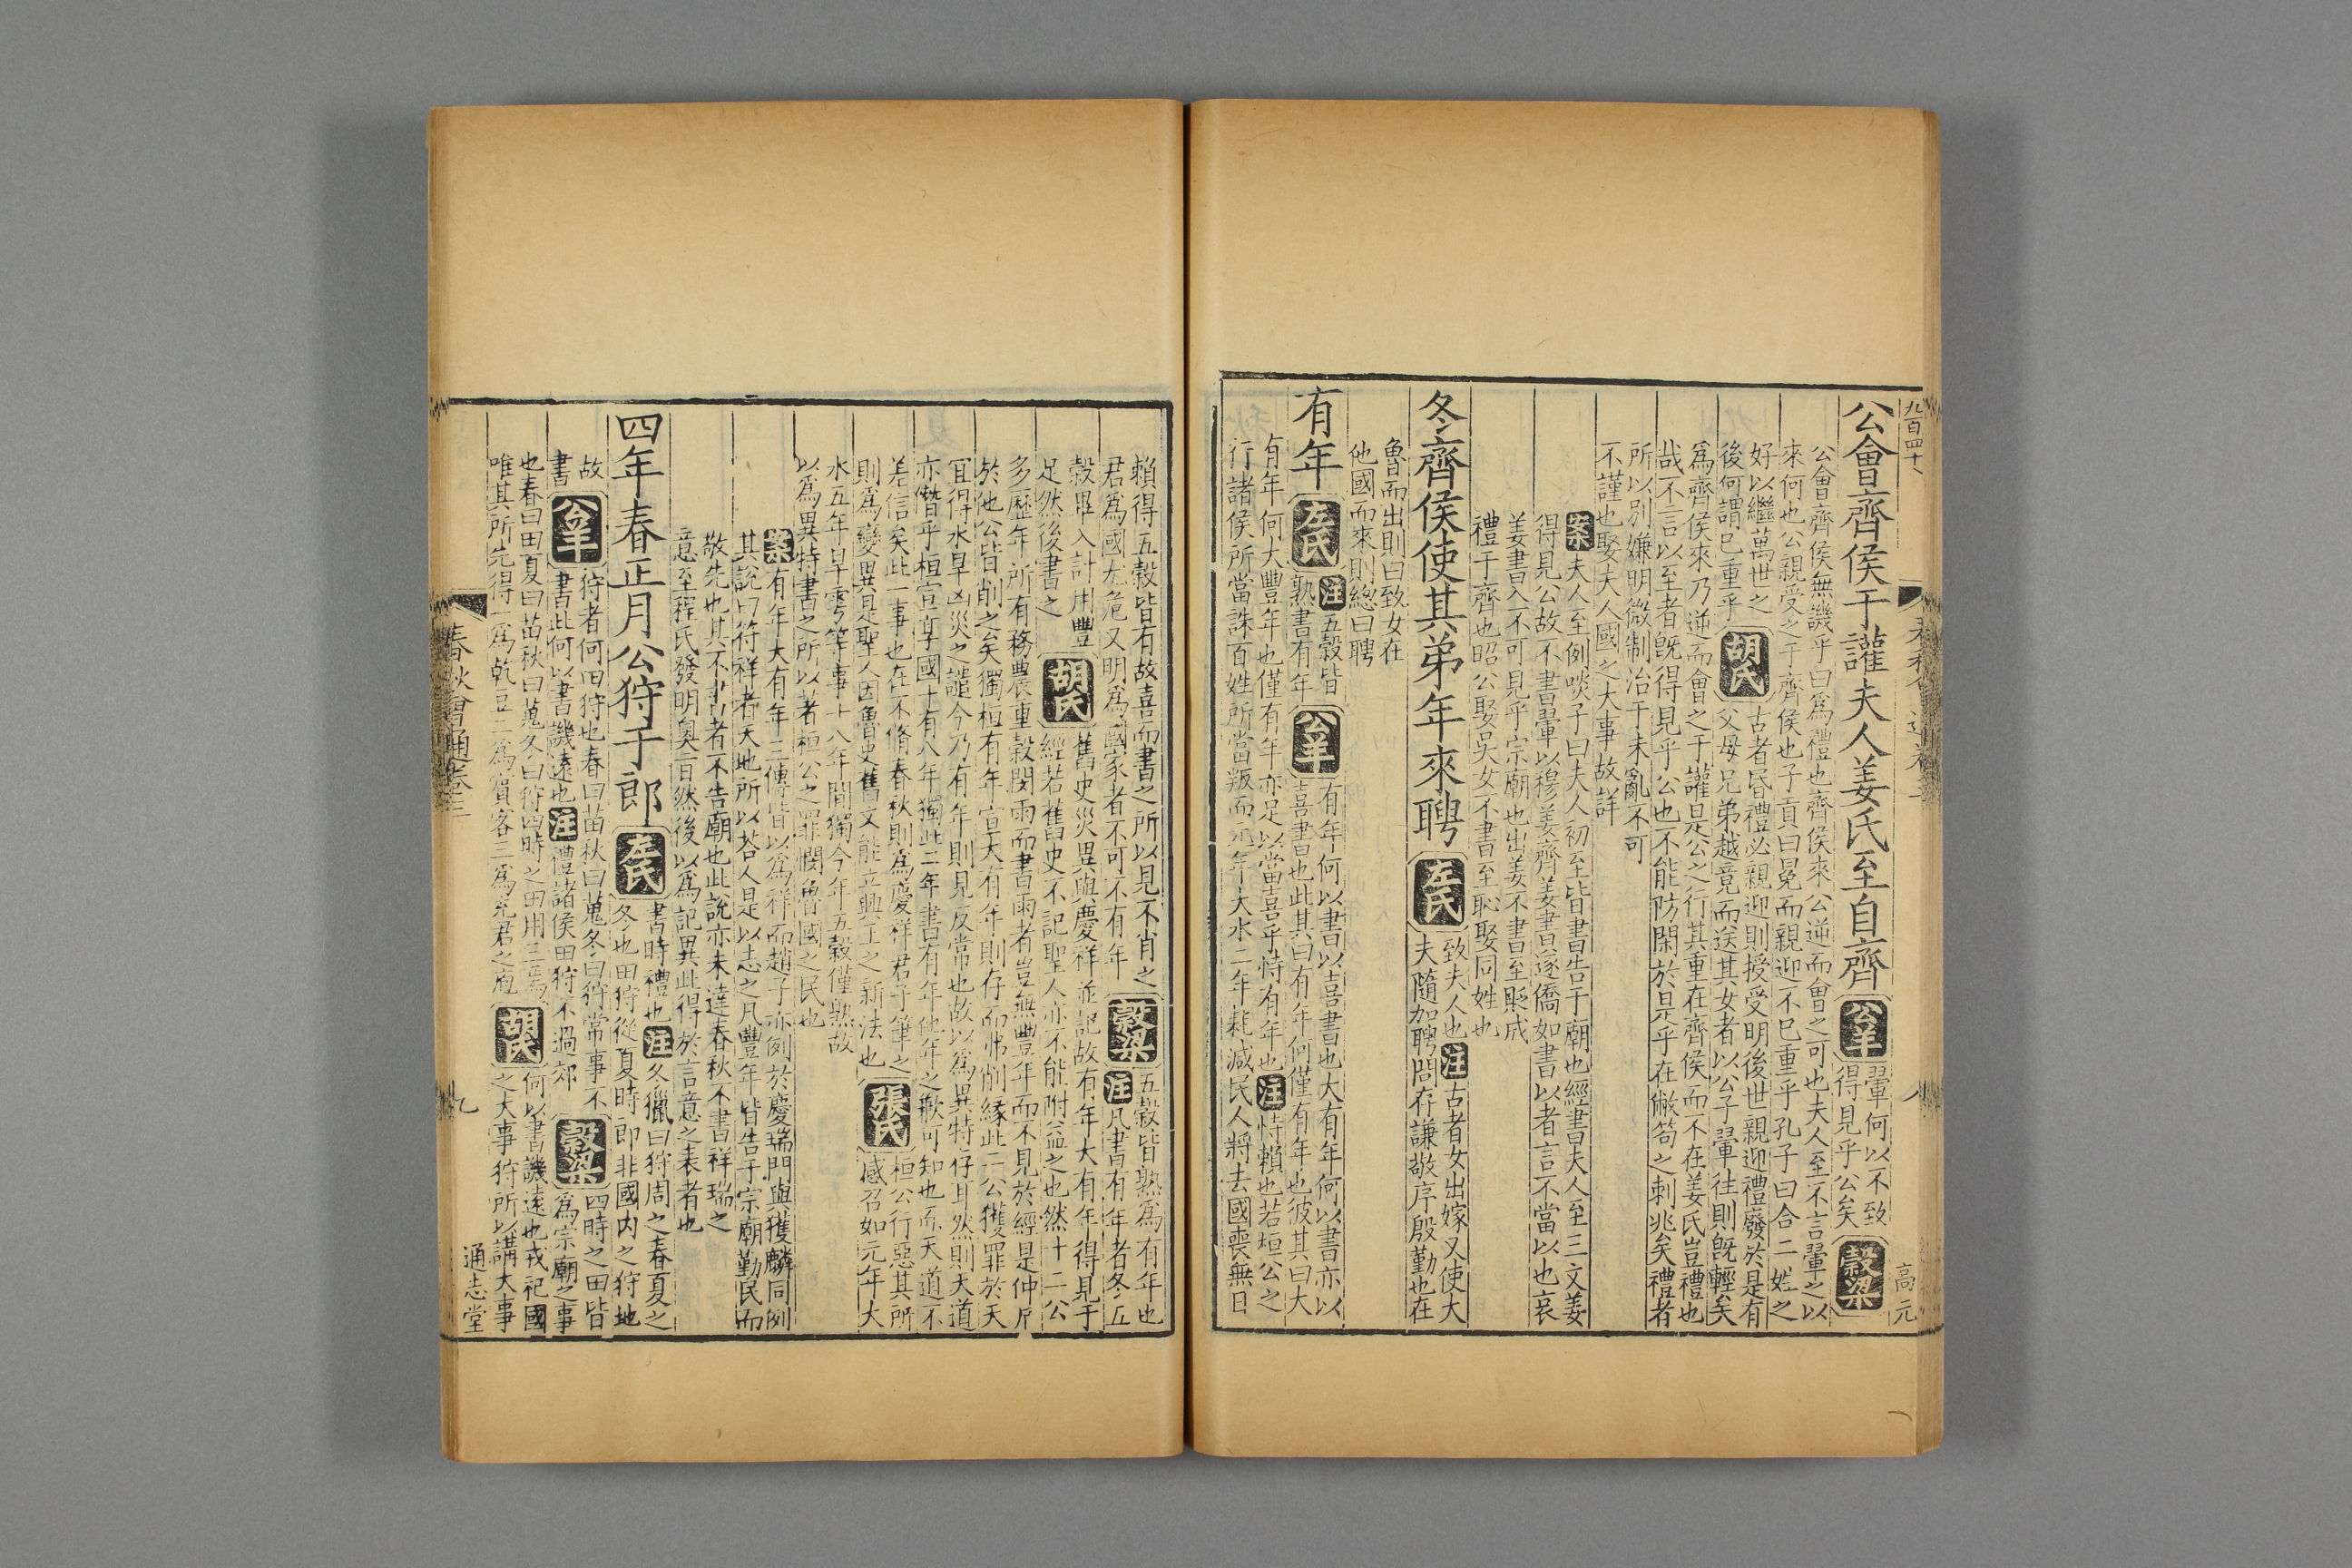 九百四十八
公會齊侯于讙夫人姜氏至自齊 公羊 翬何以不致
得見乎公矣 穀梁
公會齊侯無譏乎曰爲禮也齊侯來公逆而會之可也夫人至不言翬之以
來何也公親受之于齊侯也子貢曰冕而親迎不巳重乎孔子曰合二姓之
好以繼萬世之
後何謂巳重乎 胡氏 古者昏禮必親迎則授受明後世親迎禮廢於是有
父母兄弟越竟而送其女者以公子翬往則旣輕矣
爲齊侯來乃逆而會之于讙是公之行其重在齊侯而不在姜氏豈禮也
哉不言以至者旣得見乎公也不能防閑於是乎在敝笱之刺兆矣禮者
所以別嫌明微制治于未亂不可
不謹也娶夫人國之大事故詳
案夫人至例啖子曰夫人初至皆書告于廟也經書夫人至三文姜
得見公故不書翬以穆姜齊姜書遂僑如書以者言不當以也哀
姜書入不可見乎宗廟也出姜不書至貶成
禮于齊也昭公娶吳女不書至恥娶同姓也
冬齊侯使其弟年來聘 左氏 致夫人也 注 古者女出嫁又使大
夫隨加聘問存謙敬序殷勤也在
魯而出則曰致女在
他國而來則總曰聘
有年 左氏 注 五穀皆
熟書有年 公羊 有年何以書以喜書也大有年何以書亦以
喜書也此其曰有年何僅有年也彼其曰大
有年何大豐年也僅有年亦足以當喜乎恃有年也 注 恃賴也若桓公之
行諸侯所當誅百姓所當叛而元年大水二年耗減民人將去國喪無日
高元
賴得五穀皆有故喜而書之所以見不肖之
君爲國尤危又明爲國家者不可不有年 穀梁 五穀皆熟爲有年也
注 凡書有年者冬五
穀畢入計用豐
足然後書之 胡氏 舊史災異與慶祥並記故有年大有年得見于
經若舊史不記聖人亦不能附益之也然十二公
多歷年所有務農重穀閔雨而書雨者豈無豐年而不見於經是仲尼
於他公皆削之矣獨桓有年宣大有年則存而弗削緣此二公獲罪於天
宜得水旱凶災之譴今乃有年則見反常也故以爲異特存耳然則天道
亦僭乎桓宣享國十有八年獨此二年書有年他年之歉可知也而天道不
差信矣此一事也在不脩春秋則爲慶祥君子筆之
則爲變異是聖人因魯史舊文能立興王之新法也 張氏 桓公行惡其所
感召如元年大
水五年旱雩等事十八年間獨今年五穀僅熟故
以爲異特書之所以著桓公之罪憫魯國之民也
案有年大有年三傳皆以爲祥而趙子亦例於慶瑞門與獲麟同例
其說曰符祥者天地所以荅人是以志之凡豐年皆告于宗廟勤民而
敬先也其不書者不告廟也此說亦未達春秋不書祥瑞之
意至程氏發明奧旨然後以爲記異此得於言意之表者也
四年春正月公狩于郎 左氏 書時禮也 注 冬獵曰狩周之春夏之
冬也田狩從夏時郎非國内之狩地
故
書 公羊 狩者何田狩也春曰苗秋曰蒐冬曰狩常事不
書此何以書譏遠也 注 禮諸侯田狩不過郊 穀梁 四時之田皆
爲宗廟之事
也春曰田夏曰苗秋曰蒐冬曰狩四時之田用三焉
唯其所先得一爲乾豆二爲賓客三爲充君之庖 胡氏 何以書譏遠也戎祀國
之大事狩所以講大事
春秋會通卷三
九
通志堂